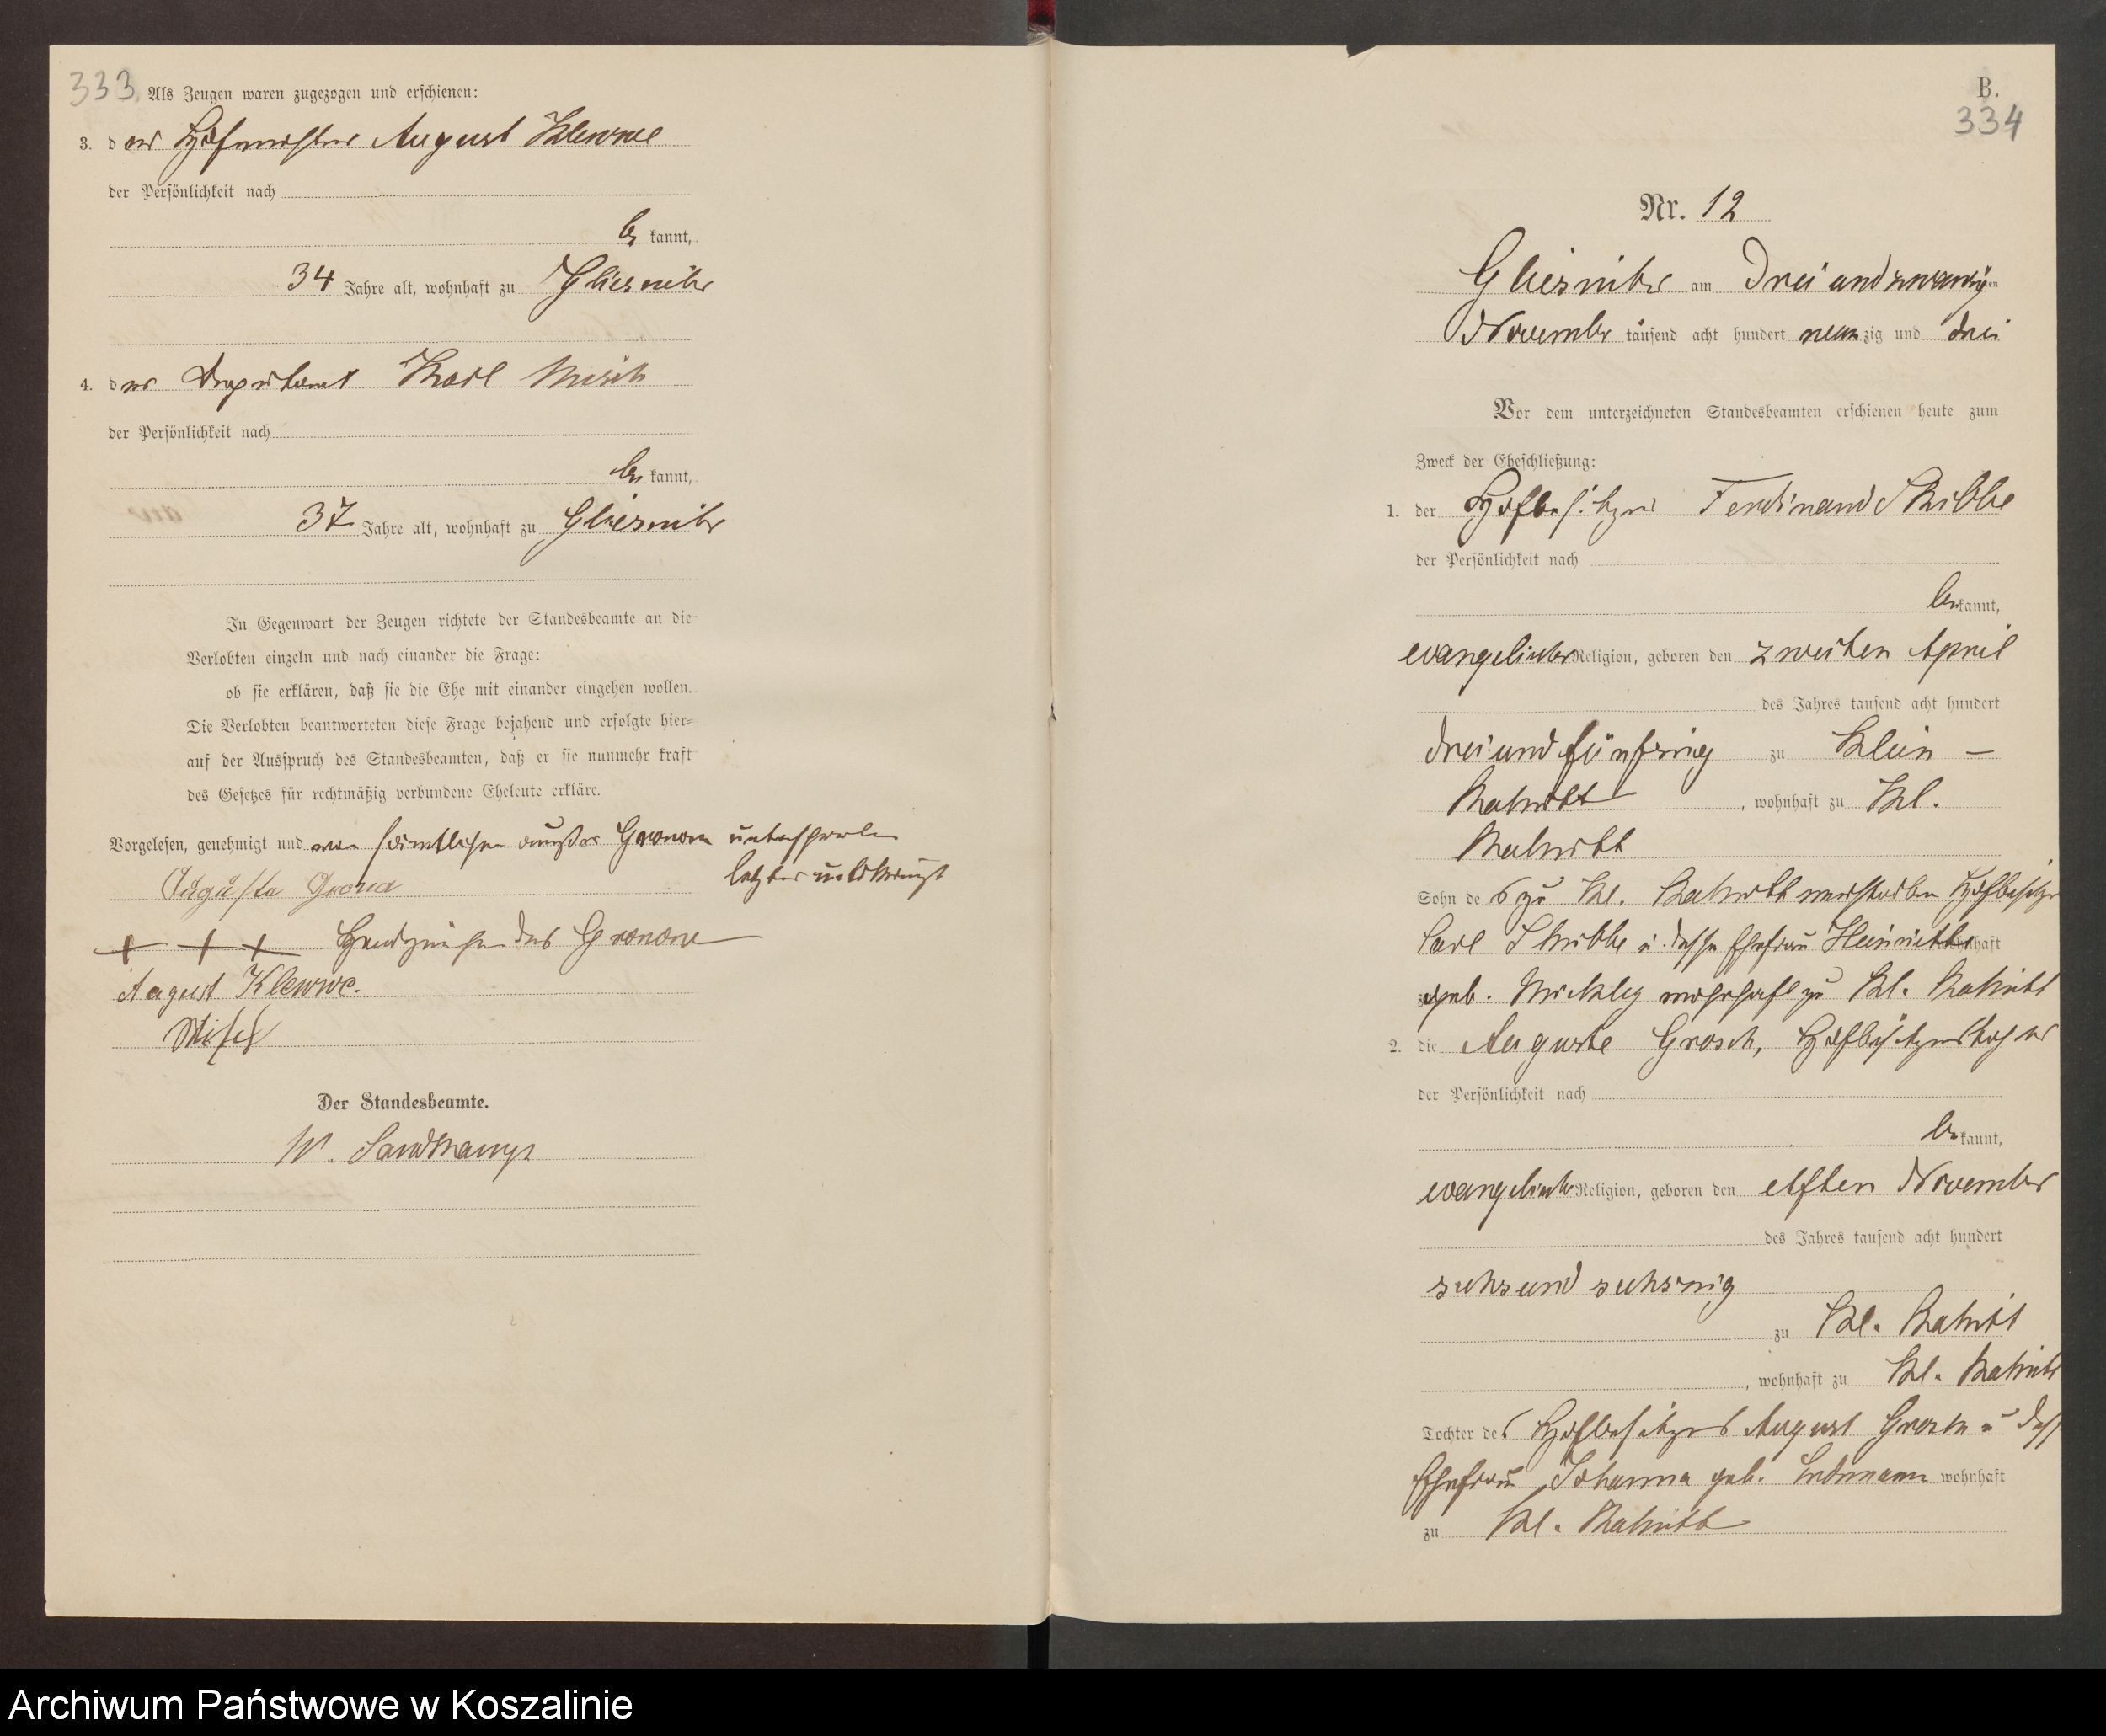 333
Als Zeugen waren zugezogen und erschienen:
3. der Hofmeister August Klewwe
der Persönlichkeit nach
be kannt,
34 Jahre alt, wohnhaft zu Gliesnitz
4. der Deputant Karl Misch
der Persönlichkeit nach
be kannt,
37 Jahre alt, wohnhaft zu Gliesnitz
In Gegenwart der Zeugen richtete der Standesbeamte an die
Verlobten einzeln und nach einander die Frage:
ob sie erklären, daß sie die Ehe mit einander eingehen wollen.
Die Verlobten beantworteten diese Frage bejahend und erfolgte hier=
auf der Ausspruch des Standesbeamten, daß er sie nunmehr kraft
des Gesetzes für rechtmäßig verbundene Eheleute erkläre.
Vorgelesen, genehmigt und von sämtlichen außer unterschrieben
letzter unterkreuzt
+ + + Handzeichen des
August Klewwe.
Misch
Der Standesbeamte.
W. Sandkamp
B.
334
Nr. 12
Gliesnitz am Dreiundzwanzigsten
November tausend acht hundert neunzig und drei
Vor dem unterzeichneten Standesbeamten erschienen heute zum
Zweck der Eheschließung:
1. der Hofbesitzer Ferdinand Skibbe
der Persönlichkeit nach
be kannt,
evangelischer Religion, geboren den zweiten April
des Jahres tausend acht hundert
dreiundfünfzig zu Klein –
, wohnhaft zu Kl.
Sohn des zu Kl. verstorbenen Hofbesitzers
Carl Skibbe u. dessen Ehefrau Heinriette
geb. wohnhaft zu Kl.
2. die Auguste Grosch, Hofbesitzerstochter
der Persönlichkeit nach
be kannt,
evangelischer Religion, geboren den elften November
des Jahres tausend acht hundert
sechsundsechszig
zu Kl.
, wohnhaft zu Kl.
Tochter des Hofbesitzers August Grosch u dess
Ehefrau Johanna geb. wohnhaft
zu Kl.
Archiwum Państwowe w Koszalinie